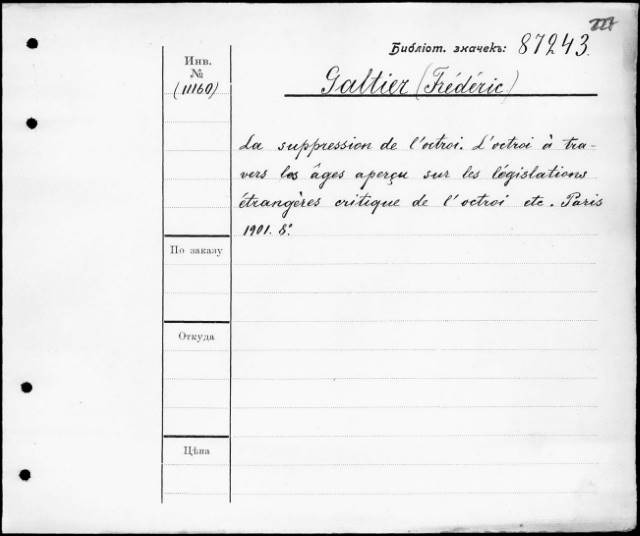 Библіот. значекъ: 87243.
Инв.
№
(11160)
Galtier (Frédéric)
La suppression de l'octroi. L'octroi à tra-
vers les âges aperçu sur les législations
étrangères critique de l'octroi etc. Paris
1901. 8º.
По заказу
Откуда
Цѣна